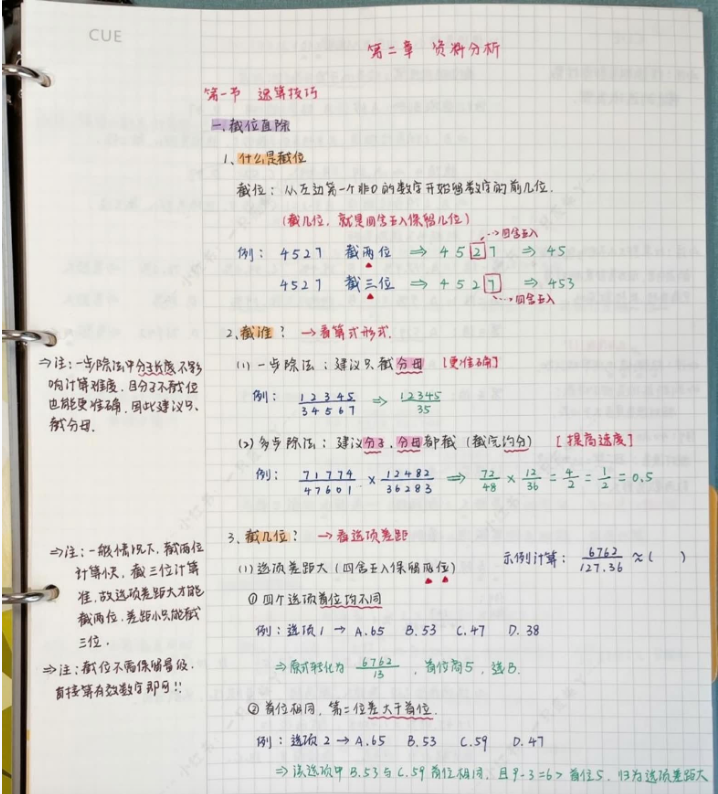 CUE
第二章 资料分析
第一节 速算技巧
一、截位直除
1、什么是截位
截位：从左边第一个非0的数字开始留数字的前几位.
(截几位，就是四舍五入保留几位)
四舍五入
例：4527 截两位 ⇒ 4527 ⇒ 45
4527 截三位 ⇒ 4527 ⇒ 453
四舍五入
2、截谁？ →看算式形式.
⇒注：一步除法中分子长度不影
响计算难度，且分子不截位
也能更准确，因此建议只
截分母.
(1) 一步除法：建议只截分母 [更准确]
例：12345/34567 ⇒ 12345/35
(2) 多步除法：建议分子、分母都截 (截完约分) [提高速度]
例：71774/47601 × 12482/36283 ⇒ 72/48 × 12/36 = 4/2 = 1/2 = 0.5
3、截几位？ →看选项差距
⇒注：一般情况下，截两位
计算快，截三位计算
准，故选项差距大才能
截两位，差距小只能截
三位.
⇒注：截位不需保留量级，
直接算有效数字即可!!
(1) 选项差距大 (四舍五入保留两位)
示例计算：6762/127.36 ≈ ( )
① 四个选项首位均不同
例：选项1 → A.65 B.53 C.47 D.38
⇒原式转化为 6762/13，首位商5，选B.
② 首位相同，第二位差大于首位.
例：选项2 → A.65 B.53 C.59 D.47
⇒该选项中B.53与C.59首位相同，且9-3=6>首位5，归为选项差距大